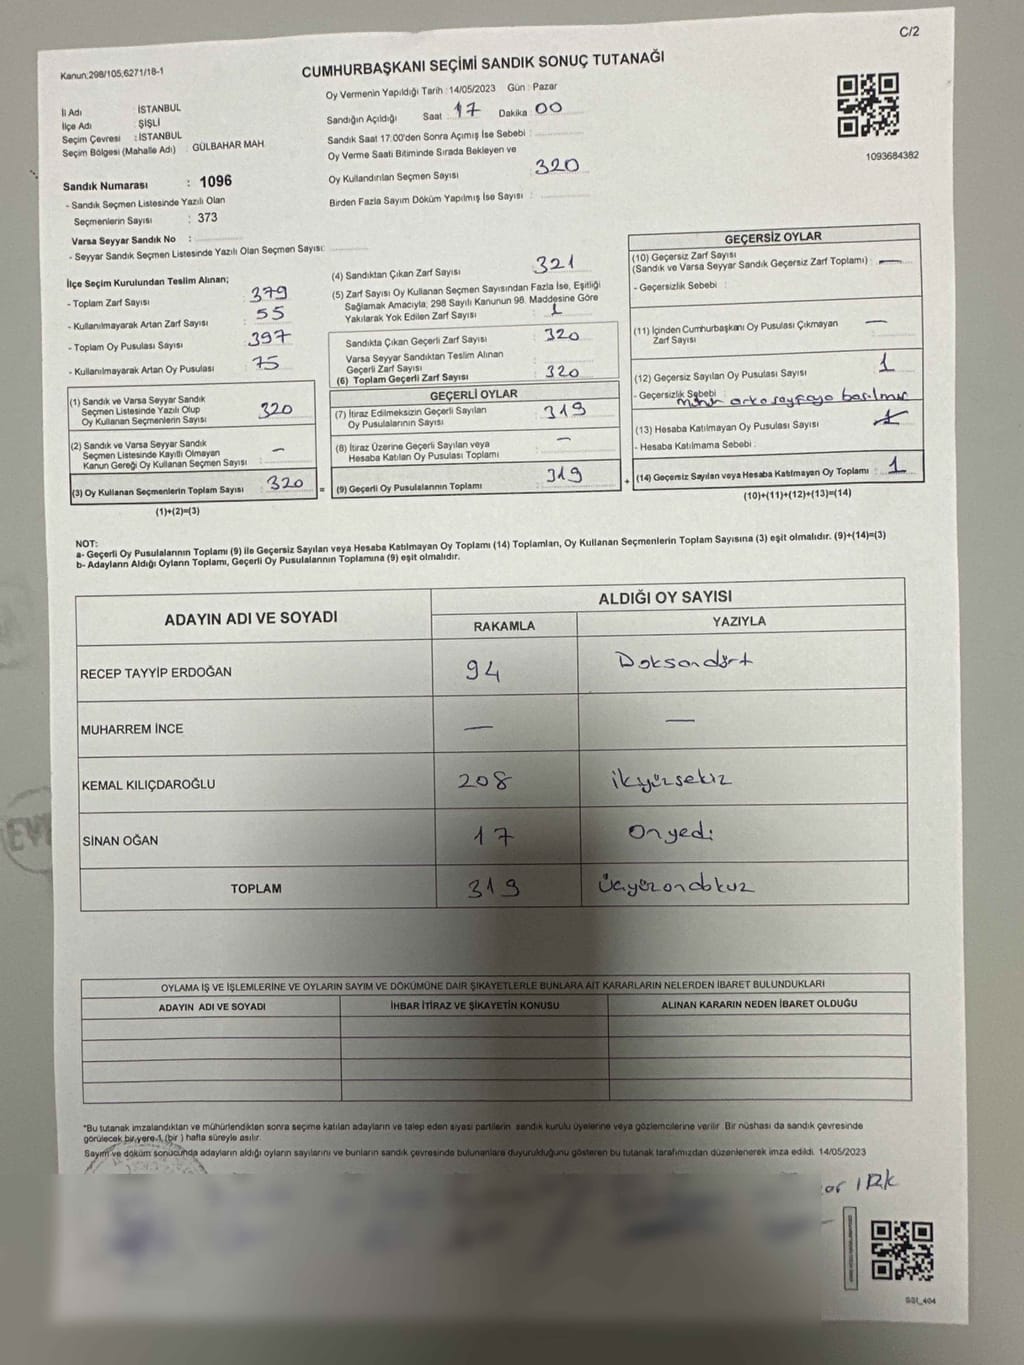 C/2
Kanun;298/105;6271/18-1
CUMHURBAŞKANI SEÇİMİ SANDIK SONUÇ TUTANAĞI
İl Adı : İSTANBUL
İlçe Adı : ŞİŞLİ
Seçim Çevresi : İSTANBUL
Seçim Bölgesi (Mahalle Adı) : GÜLBAHAR MAH.
Sandık Numarası : 1096
- Sandık Seçmen Listesinde Yazılı Olan
Seçmenlerin Sayısı : 373
Varsa Seyyar Sandık No :
- Seyyar Sandık Seçmen Listesinde Yazılı Olan Seçmen Sayısı:
Oy Vermenin Yapıldığı Tarih : 14/05/2023 Gün : Pazar
Sandığın Açıldığı Saat : 17 Dakika : 00
Sandık Saat 17:00'den Sonra Açımış İse Sebebi :
Oy Verme Saati Bitiminde Sırada Bekleyen ve
Oy Kullandırılan Seçmen Sayısı : 320
Birden Fazla Sayım Döküm Yapılmış İse Sayısı :
1093684382
İlçe Seçim Kurulundan Teslim Alınan;
- Toplam Zarf Sayısı : 379
- Kullanılmayarak Artan Zarf Sayısı : 55
- Toplam Oy Pusulası Sayısı : 397
- Kullanılmayarak Artan Oy Pusulası : 75
(1) Sandık ve Varsa Seyyar Sandık
Seçmen Listesinde Yazılı Olup
Oy Kullanan Seçmenlerin Sayısı : 320
(2) Sandık ve Varsa Seyyar Sandık
Seçmen Listesinde Kayıtlı Olmayan
Kanun Gereği Oy Kullanan Seçmen Sayısı : -
(3) Oy Kullanan Seçmenlerin Toplam Sayısı : 320 =
(1)+(2)=(3)
(4) Sandıktan Çıkan Zarf Sayısı : 321
(5) Zarf Sayısı Oy Kullanan Seçmen Sayısından Fazla İse, Eşitliği
Sağlamak Amacıyla; 298 Sayılı Kanunun 98. Maddesine Göre
Yakılarak Yok Edilen Zarf Sayısı : 1
Sandıkta Çıkan Geçerli Zarf Sayısı : 320
Varsa Seyyar Sandıktan Teslim Alınan
Geçerli Zarf Sayısı :
(6) Toplam Geçerli Zarf Sayısı : 320
GEÇERLİ OYLAR
(7) İtiraz Edilmeksizin Geçerli Sayılan
Oy Pusulalarının Sayısı : 319
(8) İtiraz Üzerine Geçerli Sayılan veya
Hesaba Katılan Oy Pusulası Toplamı : -
(9) Geçerli Oy Pusulalarının Toplamı : 319 +
GEÇERSİZ OYLAR
(10) Geçersiz Zarf Sayısı
(Sandık ve Varsa Seyyar Sandık Geçersiz Zarf Toplamı) : -
- Geçersizlik Sebebi :
(11) İçinden Cumhurbaşkanı Oy Pusulası Çıkmayan : -
Zarf Sayısı
(12) Geçersiz Sayılan Oy Pusulası Sayısı : 1
- Geçersizlik Sebebi : mühür arka sayfaya basılmış
(13) Hesaba Katılmayan Oy Pusulası Sayısı :
- Hesaba Katılmama Sebebi :
(14) Geçersiz Sayılan veya Hesaba Katılmayan Oy Toplamı : 1
(10)+(11)+(12)+(13)=(14)
NOT:
a- Geçerli Oy Pusulalarının Toplamı (9) ile Geçersiz Sayılan veya Hesaba Katılmayan Oy Toplamı (14) Toplamları, Oy Kullanan Seçmenlerin Toplam Sayısına (3) eşit olmalıdır. (9)+(14)=(3)
b- Adayların Aldığı Oyların Toplamı, Geçerli Oy Pusulalarının Toplamına (9) eşit olmalıdır.
ADAYIN ADI VE SOYADI ALDIĞI OY SAYISI
RAKAMLA YAZIYLA
RECEP TAYYİP ERDOĞAN 94 Doksandört
MUHARREM İNCE - -
KEMAL KILIÇDAROĞLU 208 ikiyüzsekiz
SİNAN OĞAN 17 Onyedi
TOPLAM 319 Üçyüzondokuz
OYLAMA İŞ VE İŞLEMLERİNE VE OYLARIN SAYIM VE DÖKÜMÜNE DAİR ŞİKAYETLERLE BUNLARA AİT KARARLARIN NELERDEN İBARET BULUNDUKLARI
ADAYIN ADI VE SOYADI İHBAR İTİRAZ VE ŞİKAYETİN KONUSU ALINAN KARARIN NEDEN İBARET OLDUĞU
*Bu tutanak imzalandıktan ve mühürlendikten sonra seçime katılan adayların ve talep eden siyasi partilerin sandık kurulu üyelerine veya gözlemcilerine verilir. Bir nüshası da sandık çevresinde
görülecek bir yere 1 (bir ) hafta süreyle asılır.
Sayım ve döküm sonucunda adayların aldığı oyların sayılarını ve bunların sandık çevresinde bulunanlara duyurulduğunu gösteren bu tutanak tarafımızdan düzenlenerek imza edildi. 14/05/2023